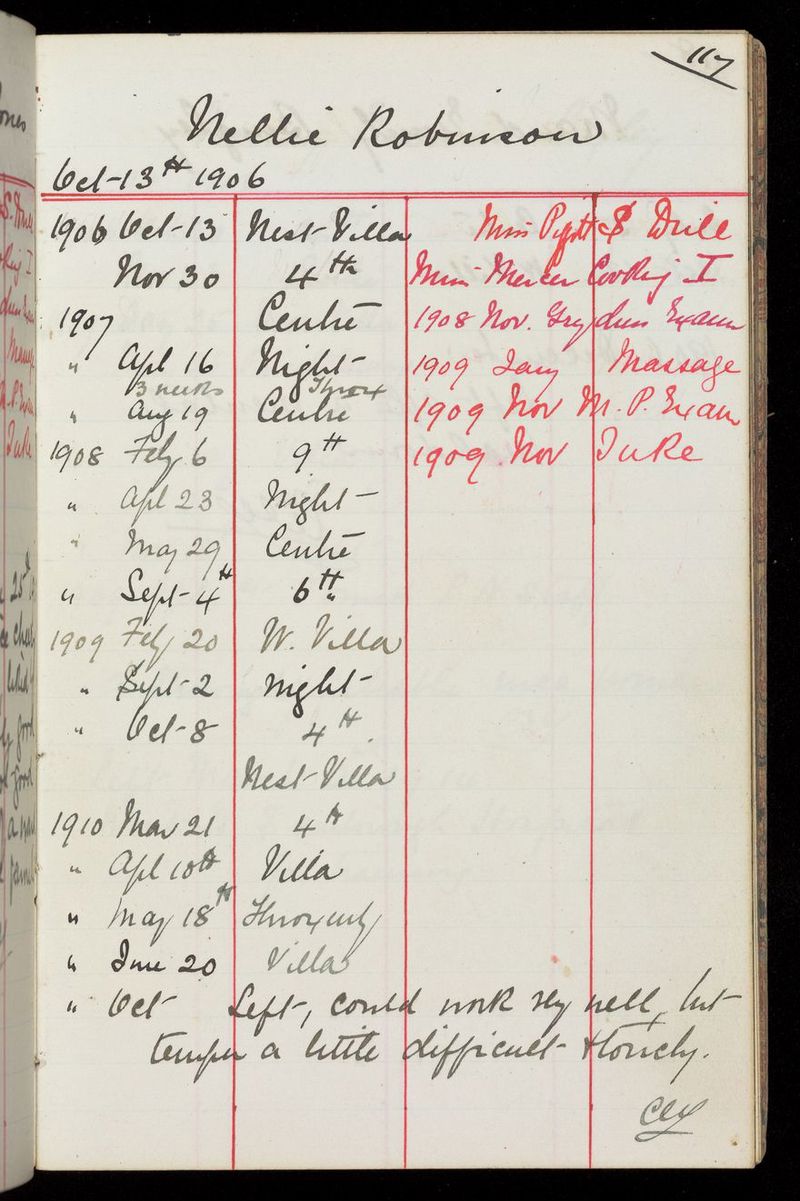 117
Nellie Robinson
Oct 13th 1906
1906 Oct 13 West Villa Miss Pyett S Drill
Nov 30 4th Miss Mercer Cooking I
1907 Centre 1908 Nov. Exam
" Apl 16 Night 1909 Jany Massage
3 weeks Throx
" Aug 19 Centre 1909 Nov M. P. Exam
1908 Feby 6 9th 1909 Nov Juke
" Apl 23 Night
" May 29 Centre
" Sept 4th 6th
1909 Feby 20 W. Villa
" Sept 2 Night
" Oct 8 4th
West Villa
1910 Mar 21 4th
" Apl 10th Villa
" May 18th
" June 20 Villa
" Oct Left, could work very well, but
temper a little difficult & touchy.